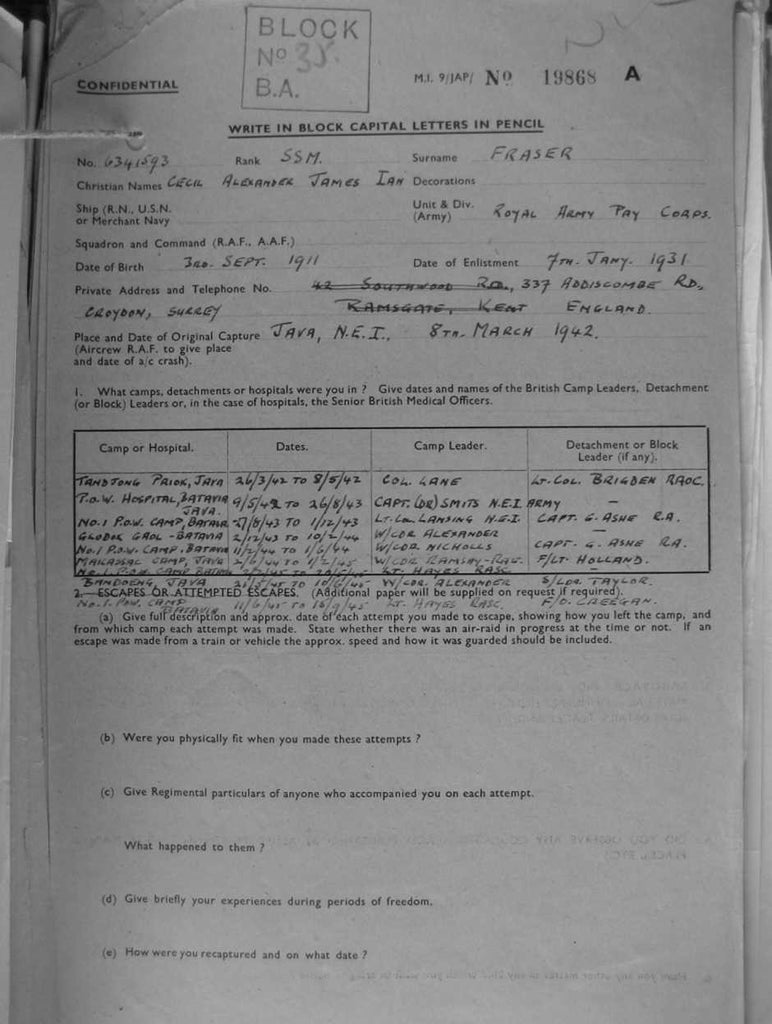 BLOCK
No 35.
B.A.
CONFIDENTIAL
M.I. 9/JAP/ No 19868 A
WRITE IN BLOCK CAPITAL LETTERS IN PENCIL
No. 6341593 Rank SSM. Surname FRASER
Christian Names CECIL ALEXANDER JAMES IAN Decorations
Ship (R.N., U.S.N. or Merchant Navy
Unit & Div. (Army) ROYAL ARMY PAY CORPS.
Squadron and Command (R.A.F., A.A.F.)
Date of Birth 3RD. SEPT. 1911 Date of Enlistment 7TH. JANY. 1931
Private Address and Telephone No. 42 SOUTHWOOD RD., 337 ADDISCOMBE RD.,
CROYDON, SURREY RAMSGATE, KENT ENGLAND.
Place and Date of Original Capture JAVA, N.E.I., 8TH. MARCH 1942.
(Aircrew R.A.F. to give place
and date of a/c crash).
1. What camps, detachments or hospitals were you in ? Give dates and names of the British Camp Leaders, Detachment
(or Block) Leaders or, in the case of hospitals, the Senior British Medical Officers.
Camp or Hospital. Dates. Camp Leader. Detachment or Block Leader (if any).
TANDJONG PRIOK, JAVA 26/3/42 TO 8/5/42 COL. LANE LT. COL. BRIGDEN RAOC.
P.O.W. HOSPITAL, BATAVIA JAVA. 9/5/42 TO 26/8/43 CAPT. (DR) SMITS N.E.I. ARMY —
No. 1 P.O.W. CAMP, BATAVIA 27/8/43 TO 1/12/43 LT. COL. LANSING N.E.I. CAPT. G. ASHE R.A.
GLODOK GAOL - BATAVIA 2/12/43 TO 10/2/44 W/CDR ALEXANDER —
No. 1 P.O.W. CAMP. BATAVIA 11/2/44 TO 1/6/44 W/CDR NICHOLLS CAPT. G. ASHE RA.
MAKASSAC CAMP, JAVA 2/6/44 TO 1/2/45 W/CDR RAMSAY-RAE. F/LT HOLLAND.
No. 1 P.O.W. CAMP. BATAVIA LT. HAYES RASC. —
BANDOENG, JAVA 21/5/45 TO 10/6/45 W/CDR. ALEXANDER S/LDR. TAYLOR.
2.—ESCAPES OR ATTEMPTED ESCAPES. (Additional paper will be supplied on request if required).
No. 1. P.O.W. CAMP BATAVIA 11/6/45 TO LT. HAYES RASC. F/O. CREEGAN.
(a) Give full description and approx. date of each attempt you made to escape, showing how you left the camp, and
from which camp each attempt was made. State whether there was an air-raid in progress at the time or not. If an
escape was made from a train or vehicle the approx. speed and how it was guarded should be included.
(b) Were you physically fit when you made these attempts ?
(c) Give Regimental particulars of anyone who accompanied you on each attempt.
What happened to them ?
(d) Give briefly your experiences during periods of freedom.
(e) How were you recaptured and on what date ?